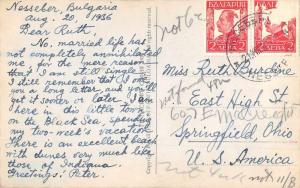 Nesseber, Bulgaria
Aug. 20, 1936
Dear Ruth,
No, married life has
not completely annihilated
me for the mere reason
that I am still single.
I still remember that I owe
you a long letter, and you'll
get it sooner or later. I am
here in this little town
on the Black Sea, spending
my two-week's vacation.
There is an excellent beach
with dunes very much like
those of Indiana.
Greetings! Peter.
БЪЛГАРИЯ
2 ЛЕВА 2
БЪЛГАРИЯ
ЛЕВА 2
not 62
Miss Ruth Burdine
East High St
not found
Springfield, Ohio
U. S. America
not
not 11/8